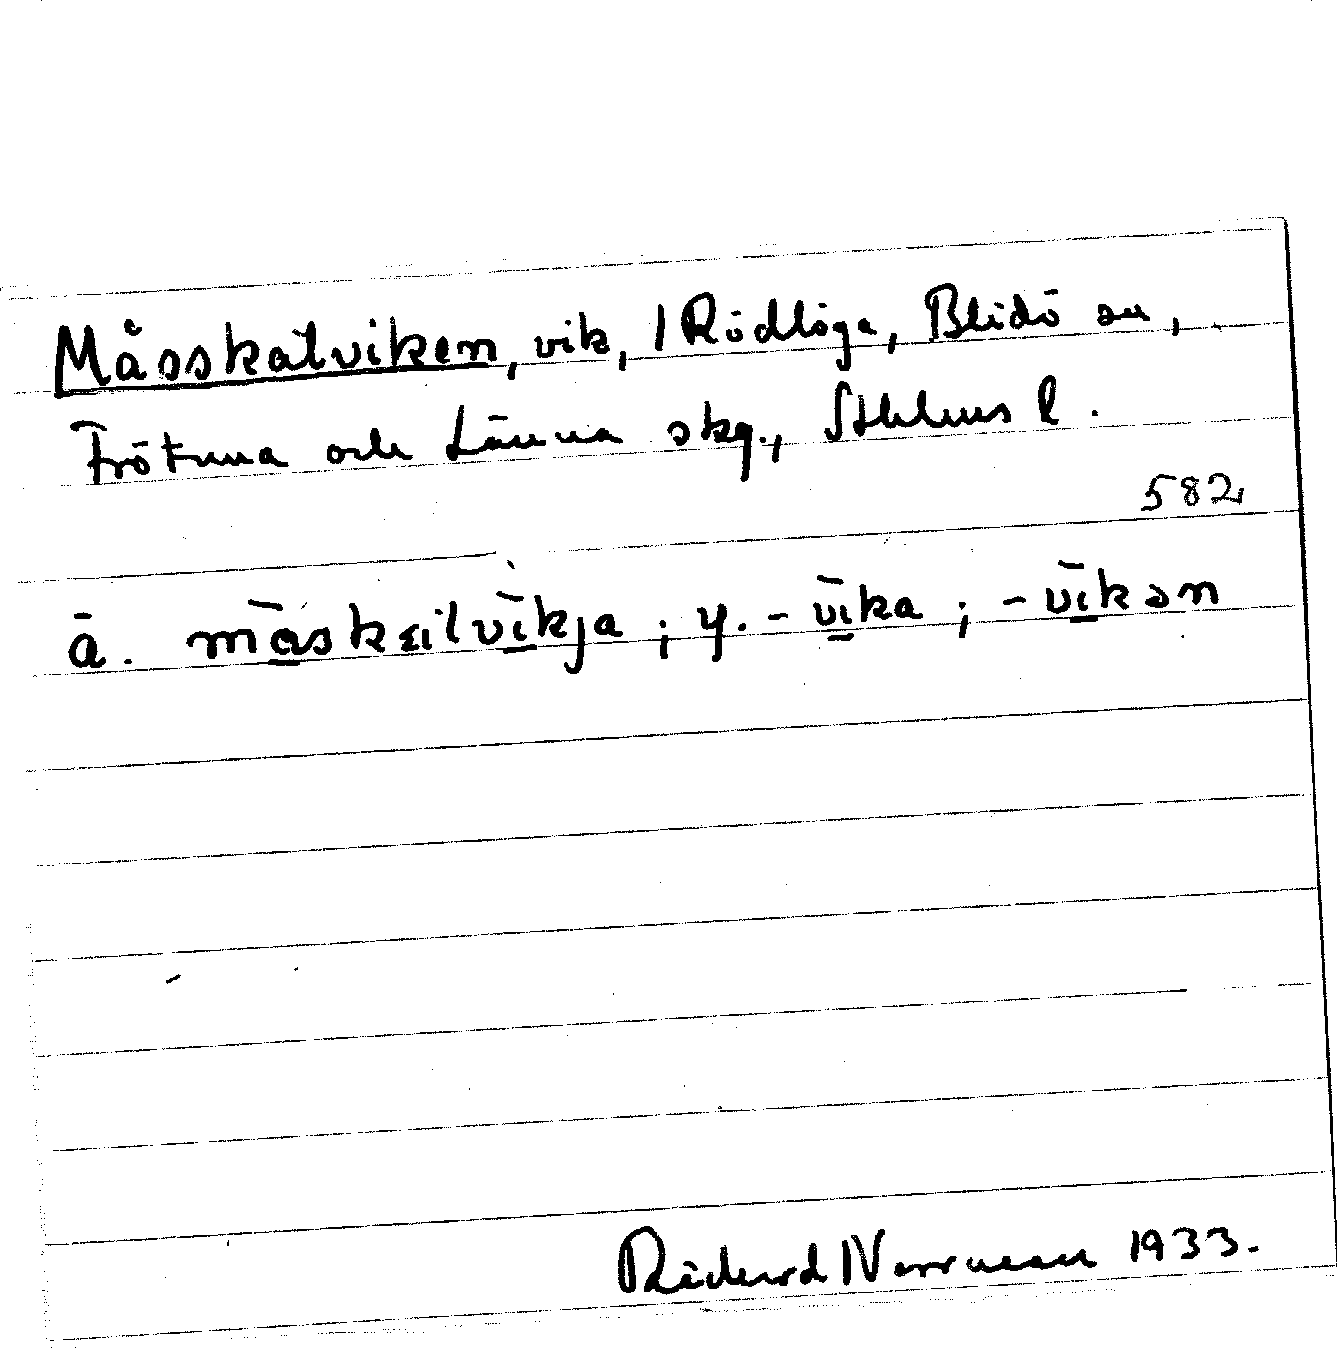 Måsskatviken, vik, / Rödlöga, Blidö sn,
Frötuna och Länna skg., Sthlms l.
582
ä. måskatvikja ; y. -vika ; -vikən
Richard Norrman 1933.